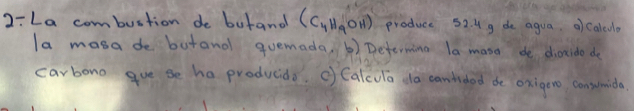 2- La combustion de butanol (C4H9OH) produce 52.4 g de agua. a) Calcula
la masa de butanol quemada. b) Determina la masa de dioxido de
carbono que se ha producido. c) Calcula la cantidad de oxigeno consumida.